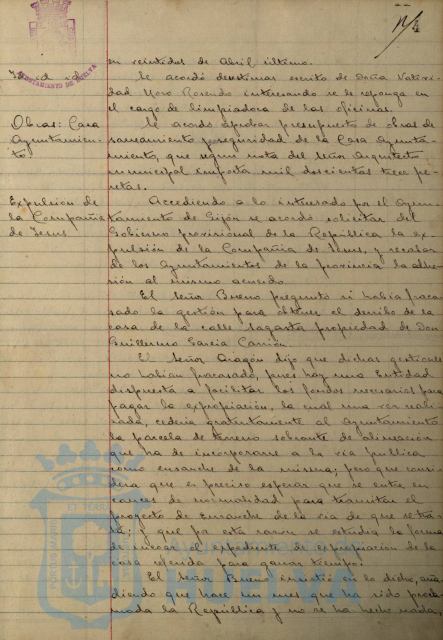 en veintidos de Abril último.
Se acordó desestimar escrito de Doña Nativi-
dad Moro Rosendo interesando se le reponga en
el cargo de limpiadora de las oficinas.
Obras: Casa
Ayuntamien-
to
Se acordó aprobar presupuesto de obras de
saneamiento y seguridad de la Casa Ayunta-
miento, que según nota del señor Arquitecto
municipal importa mil doscientas trece pe-
setas.
Expulsión de
la Compañía
de Jesus
Accediendo a lo interesado por el Ayun-
tamiento de Gijón se acordó solicitar del
Gobierno provisional de la República la ex-
pulsión de la Compañía de Jesus, y recabar
de los Ayuntamientos de la provincia la adhe-
sión al mismo acuerdo
El Señor Bueno preguntó si había fraca-
sado la gestión para obtener el derribo de la
casa de la calle Sagasta propiedad de Don
Guillermo García Carrión
El Señor Aragón dijo que dichas gestiones
no habían fracasado, pues hay una Entidad
dispuesta a facilitar los fondos necesarios para
pagar la expropiación, la cual una vez reali-
zada, cedería gratuitamente al Ayuntamiento
la parcela de terreno sobrante de alineación
que ha de incorporarse a la vía publica
como ensanche de la misma; pero que consi-
dera que es preciso esperar que se entre en
cauces de normalidad para tramitar el
proyecto de Ensanche de la vía de que se tra-
ta; y que por esta razon se estudia la forma
de incoar el expediente de expropiación de la
casa referida para ganar tiempo.
El Señor Bueno insistió en lo dicho, aña-
diendo que hace un mes que ha sido procla-
mada la República y no se ha hecho nada,
AYUNTAMIENTO DE HUELVA